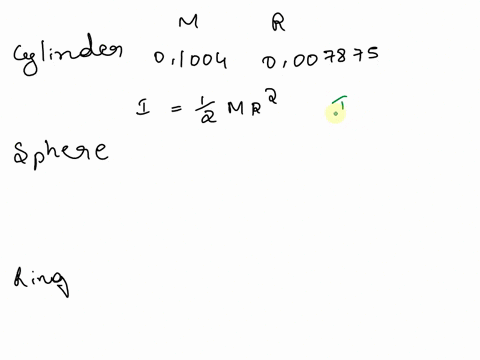 M R
Cylinder 0.1004 0.007875
I = 1/2 MR²
Sphere
Ring